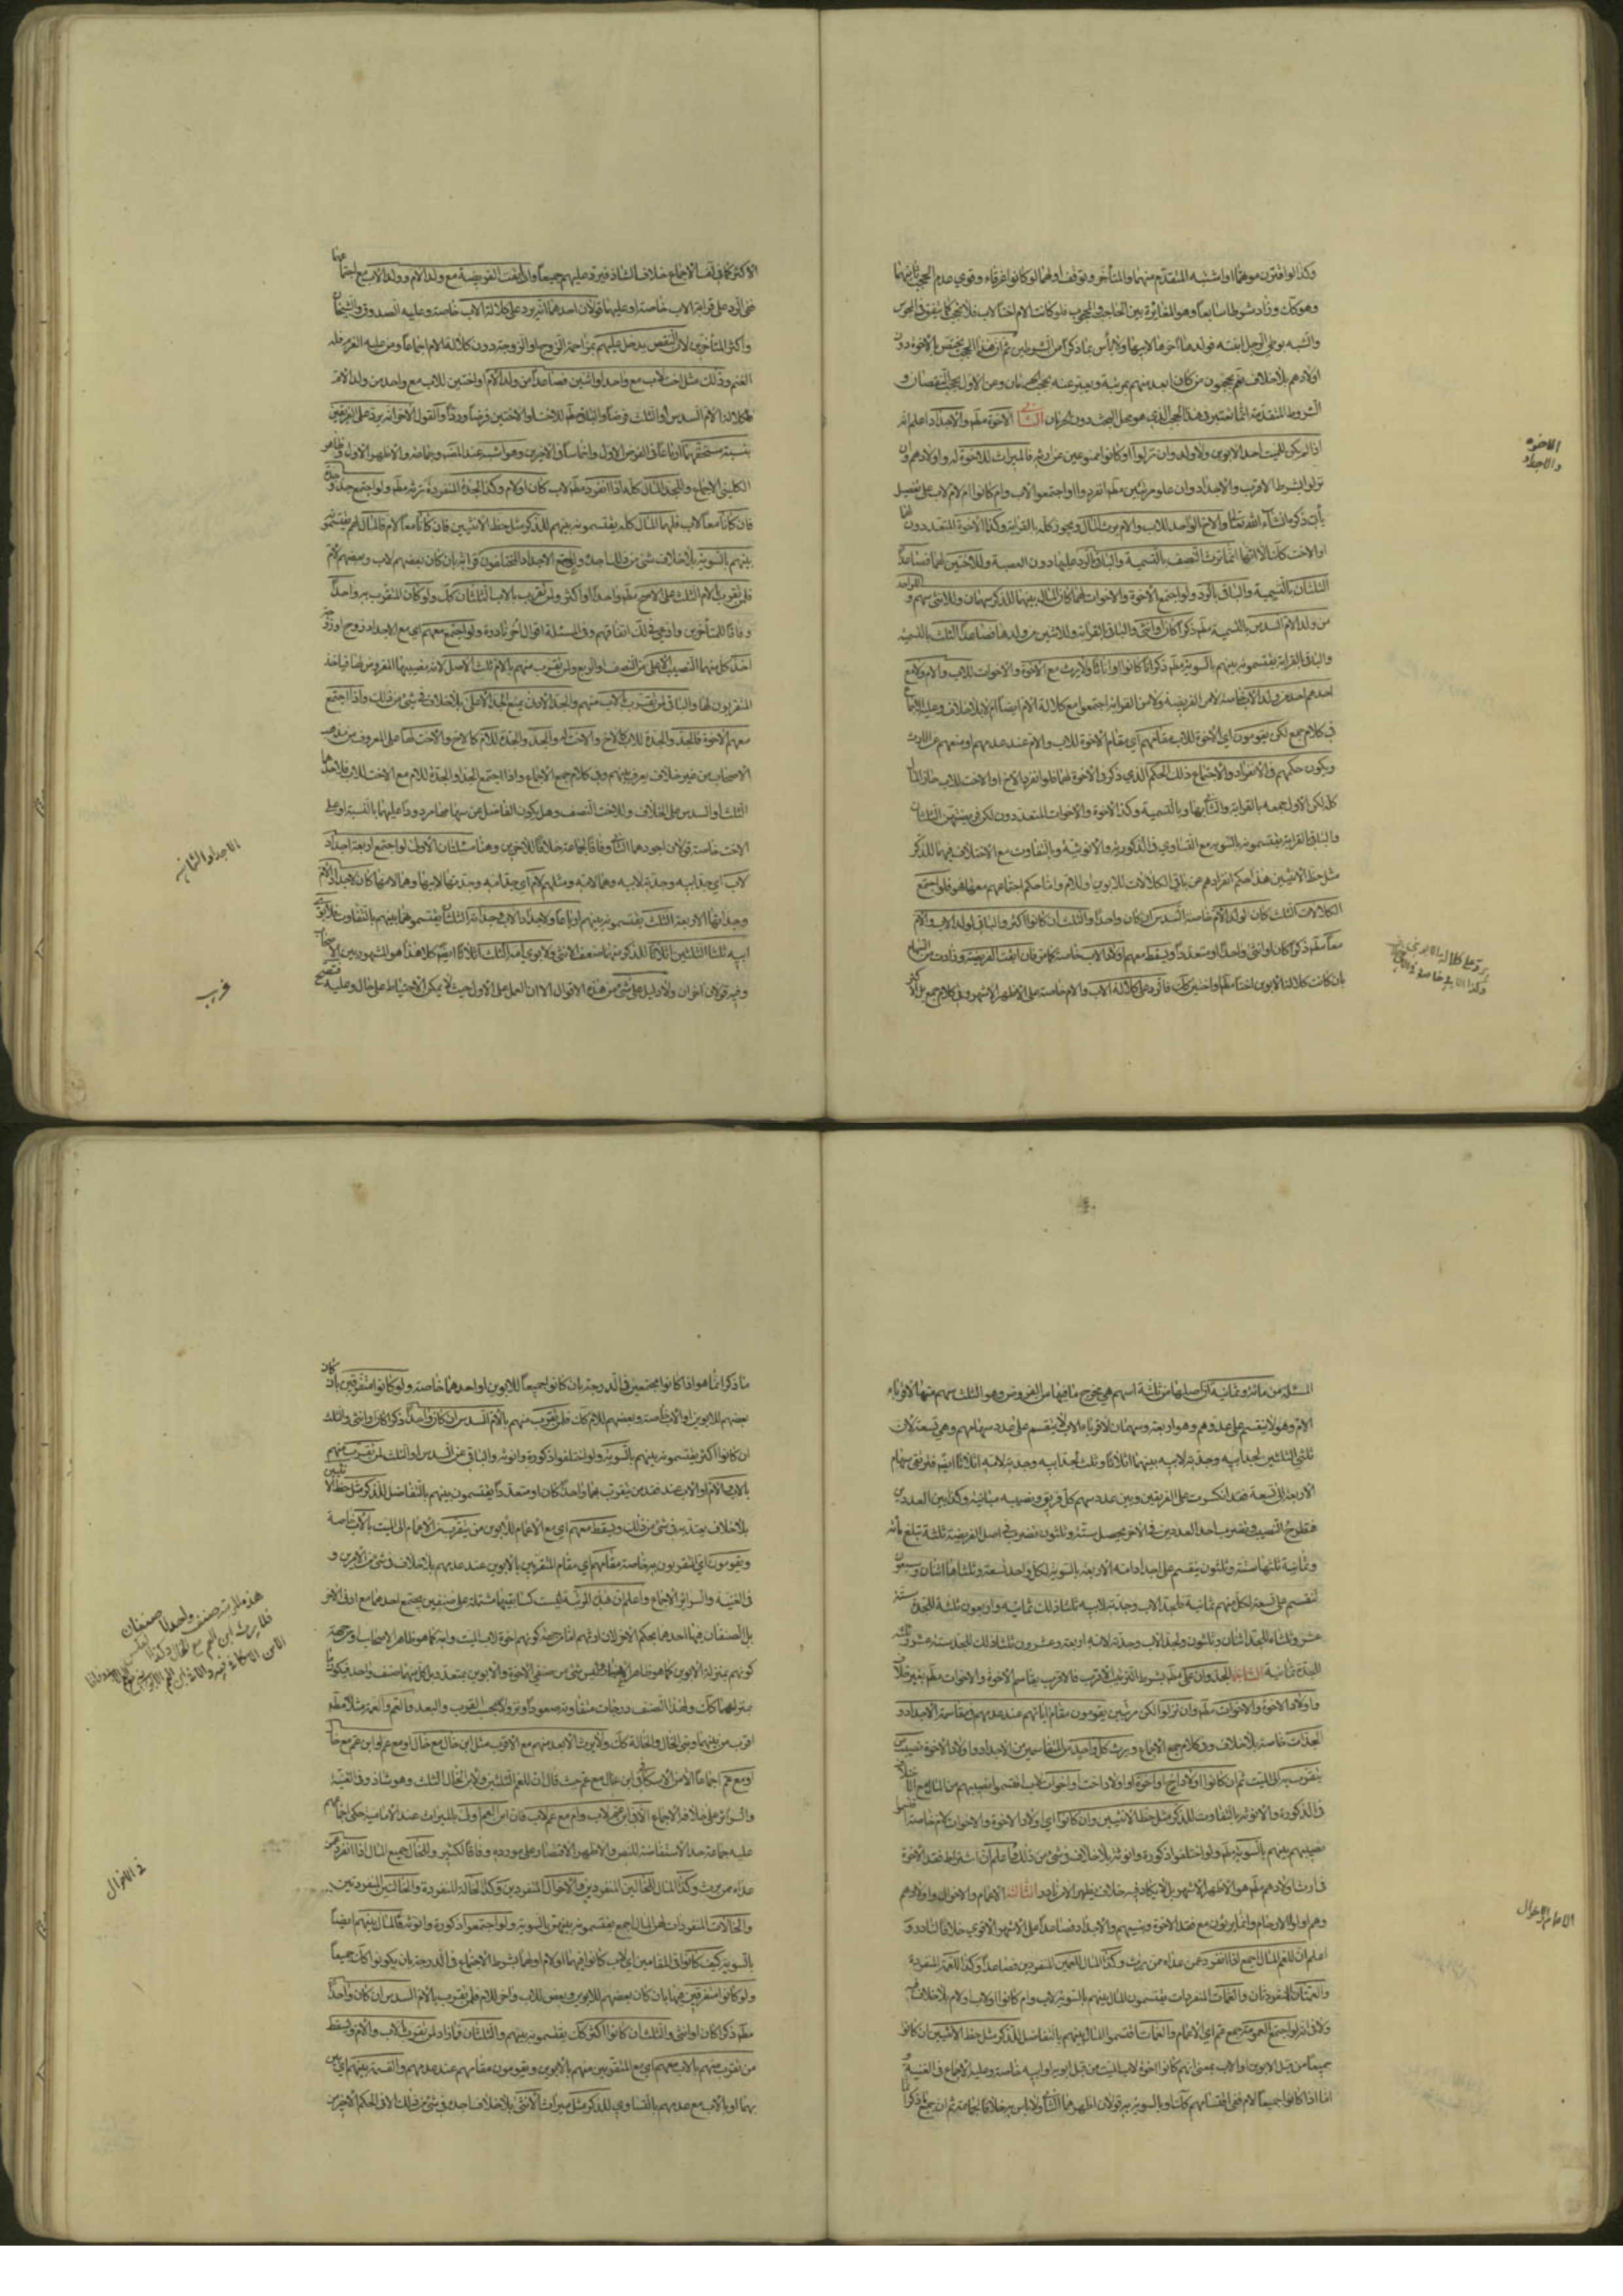 وكذا لو اقترن موتهما او اشتبه المتقدم منهما والمتأخر وتوقف اولهما لو كانوا غرقاء وقوي عدم الحجب ثانيهما
وهو كك وزاد شرطا سابعا وهو المغايرة بين الحاجب والمحجوب فلو كانت الام اختا لاب فلا تحجب كما يتفق في المجوس
والشبه بوطى الرجل ابنته فولدها اخوها لابيها ولا بأس بما ذكرا من الشرطين ثم ان هذا الحجب يختص بالاخوة دون
اولادهم بلا خلاف نعم يحجبون من كان ابعد منهم بمرتبة ويعبر عنه بحجب الحرمان وعن الاول بحجب النقصان و
الشروط المتقدمة انما تعتبر في هذا الحجب الذي هو محل البحث دون الحرمان الثانية الاخوة مطم والاجداد اعلم انه
اذا لم يكن للميت احد الابوين ولا ولد وان نزلوا او كانوا ممنوعين عن ارثه فالميراث للاخوة له واولادهم وان
نزلوا بشرط الاقرب والاجداد وان علو مرتبين مطم انفردوا او اجتمعوا لاب وام كانوا ام لام لاب على تفصيل
يأتي ذكره انشاء الله تعالى والاخ الواحد للاب والام يرث المال ويحوز كله بالقرابة وكذا الاخوة المتعددون لهما
او الاخت كك الا انها انما ترث النصف بالتسمية والباقي بالرد عليها دون العصبة وللاختين لهما فصاعدا
الثلثان بالتسمية والباقي بالرد ولو اجتمع الاخوة والاخوات لهما كان المال بينهما للذكر سهمان وللانثى سهم وللواحد
من ولد الام السدس بالتسمية مطم ذكرا كان او انثى والباقي بالقرابة وللاثنين من ولدها فصاعدا الثلث بالتسمية
والباقي بالقرابة يقتسمونه بينهم بالسوية مطم ذكرانا كانوا او اناثا ولا يرث مع الاخوة والاخوات للاب والام ولا مع
احدهم احد من ولد الاب خاصة لا من الفريضة ولا من القرابة اجتمعوا مع كلالة الام ايضا ام لا بلا خلاف وعليه الاجماع
في كلام جمع لكن يقومون اي الاخوة للاب مقامهم اي مقام الاخوة للاب والام عند عدمهم او منعهم عن الارث
ويكون حكمهم في الانفراد والاجتماع ذلك الحكم الذي ذكر في الاخوة لهما فلو انفرد الاخ او الاخت للاب حاز المال
كله لكن الاول جمعه بالقرابة والثاني بها وبالتسمية وكذا الاخوة والاخوات المتعددون لكن فرضهن الثلثان
والباقي بالقرابة يقتسمونه بالسوية مع التساوي في الذكورية والانوثية وبالتفاوت مع الاختلاف فيهما للذكر
مثل حظ الانثيين هذا حكم انفرادهم عن باقي الكلالات للابوين او للام واما حكم اجتماعهم معها فهو فلو اجتمع
الكلالات الثلث كان لولد الام خاصة السدس ان كان واحدا والثلث ان كانوا اكثر والباقي لولد الاب والام
معا مطم ذكرا كان او انثى واحدا او متعددا ويسقط معهم اولاد الاب خاصة كما مر فان ابقت الفريضة وزادت من السهام
بان كانت كلالة الابوين اختا مطم او اختين كك فالرد على كلالة الاب والام خاصة على الاظهر الاشهر وفي كلام جمع بل اكثر
الاخوة
والاجداد
الاكثر كما في لفظ الاجماع خلاف الشاذ فيرد عليهم جميعا ولو ابقت الفريضة مع ولد الام وولد الاب مع اجتماعهما
ففي الرد على قرابة الاب خاصة او عليهما قولان احدهما انه يرد على كلالة الاب خاصة وعليه الصدوق والشيخان
واكثر المتأخرين لان النقص يدخل عليهم بمزاحمة الزوج او الزوجة دون كلالة الام اجماعا ومن عليه الغرم فله
الغنم وذلك مثل اخت لاب مع واحد او اثنين فصاعدا من ولد الام او اختين للاب مع واحد من ولد الام
فلكلالة الام السدس او الثلث فرضا والباقي للاخت او الاختين فرضا وردا والقول الاخر انه يرد على الفريقين
بنسبة مستحقهما ارباعا في الفرض الاول واخماسا في الاخرين وهو اشبه عند المصنف وجماعة والاظهر الاول وظاهر
الكليني الاجماع وللجد المال كله اذا انفرد مطم لاب كان او لام وكذا الجدة المنفردة ترثه مطم ولو اجتمع جد وجدة
فان كانا معا لاب فلهما المال كله يقتسمونه بينهم للذكر مثل حظ الانثيين فان كانا معا لام فالمال لهم يقتسمونه
بينهم بالسوية بلا خلاف في شئ من ذلك اجده ولو اجتمع الاجداد المختلفون قرابة بان كان بعضهم لاب وبعضهم لام
فلمن تقرب بالام الثلث على الاصح مطم واحدا او اكثر ولمن تقرب بالاب الثلثان كك ولو كان المتقرب به واحدا
وفاقا للمتأخرين وادعى في ذلك اتفاقهم وفي المسئلة اقوال اخر نادرة ولو اجتمع معهم اي مع الاجداد زوج او زوجة
اخذ كل منهما النصيب الاعلى من النصف والربع ولمن تقرب منهم بالام ثلث الاصل لانه نصيبها المفروض لها فياخذه
المتقربون لها والباقي لمن تقرب بالاب منهم والجد الادنى يمنع الجد الاعلى بلا خلاف في شئ من ذلك واذا اجتمع
معهم الاخوة فالجد والجدة للاب كالاخ والاخت له والجد والجدة للام كالاخ والاخت لها على المعروف من مذهب
الاصحاب من غير خلاف يعرف بينهم وفي كلام جمع الاجماع واذا اجتمع الجد او الجدة للام مع الاخت للاب فلاحدهما
الثلث او السدس على الخلاف وللاخت النصف وهل يكون الفاضل عن سهامهما مردودا عليهما بالنسبة او على
الاخت خاصة قولان اجودهما الثاني وفاقا لجماعة خلافا للاخرين وهنا مسئلتان الاولى لو اجتمع اربعة اجداد
لاب اي جد ابيه وجدته لابيه وهما لامه ومثلهم لام اي جد امه وجدتها لابيها وهما لامها كان لاجداد الام
وجداتها الاربعة الثلث يقتسمونه بينهم ارباعا ولاجداد الاب وجداته الثلثان يقتسمونها بينهم بالتفاوت فلابوي
ابيه ثلثا الثلثين اثلاثا للذكر منهما ضعف الانثى ولابوي امه الثلث اثلاثا ايضا كل هذا هو المشهور بين الاصحاب
وفيه قولان اخران ولا دليل على شئ من هذه الاقوال الا ان العمل على الاول حيث لا يمكن الاحتياط على حال وعليه فتصح
الاجداد الثمانية
غريب
المسئلة من مائة وثمانية لان اصلها من ثلثة اسهم هي مخرج ما فيها من الفروض وهو الثلث سهم منها لاقرباء
الام وهو لا ينقسم على عددهم وهو اربعة وسهمان لاقرباء الاب لا ينقسم على عدد سهامهم وهي تسعة لان
ثلثي الثلثين لجد ابيه وجدته لابيه بينهما اثلاثا وثلث لجد ابيه وجدته لامه اثلاثا ايضا فترتقي سهام
الاربعة الى تسعة فقد انكسرت على الفريقين وبين عدد سهم كل فريق ونصيبه مباينة وكذا بين العددين
فتطرح النصيب وتضرب احد العددين في الاخر يحصل ستة وثلثون تضرب في اصل الفريضة ثلثة تبلغ مائة
وثمانية ثلثها ستة وثلثون ينقسم على اجداد امه الاربعة بالسوية لكل واحد تسعة وثلثاها اثنان وسبعون
تنقسم على تسعة لكل منهم ثمانية فلجد الاب وجدته لابيه ثلثا ذلك ثمانية واربعون ثلثه للجدة ستة
عشر وثلثاه للجد اثنان وثلثون ولجد الاب وجدته لامه اربعة وعشرون ثلثا ذلك للجد ستة عشر وثلثه
للجدة ثمانية الثانية الجد وان علا مطم بشرط الترتيب الاقرب فالاقرب يقاسم الاخوة والاخوات مطم بغير خلاف
واولاد الاخوة والاخوات مطم وان نزلوا لكن مرتبين يقومون مقام ابائهم عند عدمهم في مقاسمة الاجداد و
الجدات خاصة بلا خلاف وفي كلام جمع الاجماع ويرث كل واحد من المتقاسمين من الاجداد واولاد الاخوة نصيب من
يتقرب به الى الميت ثم ان كانوا اولاد اخ او اخوة او اولاد اخت او اخوات لاب اقتسموا نصيبهم من المال مع اختلافهم
في الذكورة والانوثة بالتفاوت للذكر مثل حظ الانثيين وان كانوا اي اولاد الاخوة والاخوات لام خاصة اقتسموا
نصيبهم بينهم بالسوية مطم ولو اختلفوا ذكورة وانوثة بلا خلاف في شئ من ذلك فاعلم ان اشتراط فقد الاخوة
في ارث اولادهم مطم هو الاظهر الاشهر بل لا يكاد فيه خلاف يظهر الا من نادر الثالثة الاعمام والاخوال واولادهم
وهم اولوا الارحام وانما يرثون مع فقد الاخوة وبنيهم والاجداد فصاعدا على الاشهر الاقوى خلافا لنادر و
اعلم ان للعم المال اجمع اذا انفرد عمن عداه ممن يرث وكذا المال للعمين المنفردين فصاعدا وكذا للعمة المنفردة
والعمتان المنفردتان والعمات المنفردات يقتسمون المال بينهم بالسوية لاب وام كانوا او لاب او لام بلا خلاف فيه
جميعا من قبل الابوين او الاب بمعنى انهم كانوا اخوة لاب الميت من قبل ابويه او ابيه خاصة وعليه الاجماع في الغنية
الاعمام والاخوال
ما ذكر انما هو اذا كانوا مجتمعين في الدرجة بان كانوا جميعا للابوين او احدهما خاصة ولو كانوا متفرقين بان كان
بعضهم للابوين او الاب خاصة وبعضهم للام كك فلمن تقرب منهم بالام السدس ان كان واحدا ذكرا كان او انثى والثلث
ان كانوا اكثر يقتسمونه بينهم بالسوية ولو اختلفوا ذكورة وانوثة والباقي عن السدس او الثلث لمن تقرب منهم
بالاب والام او الاب عند فقد من يتقرب بهما واحدا كان او متعددا يقتسمون بينهم بالتفاضل للذكر مثل حظ الانثيين
بلا خلاف يعتد به في شئ من ذلك ويسقط معهم اي مع الاعمام للابوين من يتقرب من الاعمام الى الميت بالاب خاصة
ويقومون اي المتقربون به خاصة مقامهم اي مقام المتقربين بالابوين عند عدمهم بلا خلاف في شئ من الامرين و
في الغنية والسرائر الاجماع واعلم ان هذه المرتبة ليست كسابقتها مشتملة على صنفين يجتمع احدهما مع ادنى الاخر
افرب من بنيهما وبني الخال والخالة كك ولا يرث الابعد منهم مع الاقرب مثل ابن خال مع خال او مع عم او ابن عم مع خال
او مع عم اجماعا الا من الاسكافي في ابن خال مع عم حيث قال ان للعم الثلثين ولابن الخال الثلث وهو شاذ وفي الغنية
والسرائر على خلافه الاجماع الا في ابن عم لاب وام مع عم لاب فان ابن العم اولى بالميراث عند الامامية حكى اجماعهم
عليه جماعة حد الاستفاضة للنص والاظهر الاقتصار على مورده وفاقا لكثير وللخال جميع المال اذا انفرد عمن
عداه ممن يرث وكذا المال للخالين المنفردين والاخوال المنفردين وكذا الخالة المنفردة والخالتين المنفردتين
والخالات المنفردات لهن المال اجمع يقتسمونه بينهن بالسوية ولو اجتمعوا ذكورة وانوثة فالمال بينهم ايضا
بالسوية كيف كانوا في المقامين اي لاب كانوا فيهما او لام او لهما بشرط الاجتماع في الدرجة بان يكونوا كك جميعا
ولو كانوا متفرقين فيهما بان كان بعضهم للابوين وبعض للاب واخر للام فلمن تقرب بالام السدس ان كان واحدا
مطم ذكرا كان او انثى والثلث ان كانوا اكثر كك يقتسمونه بينهم والثلثان فما زاد لمن تقرب بالاب والام ويسقط
من تقرب منهم بالاب معهم اي مع المتقربين منهم بالابوين ويقومون مقامهم عند عدمهم والقسمة بينهم اي بين
في الاخوال